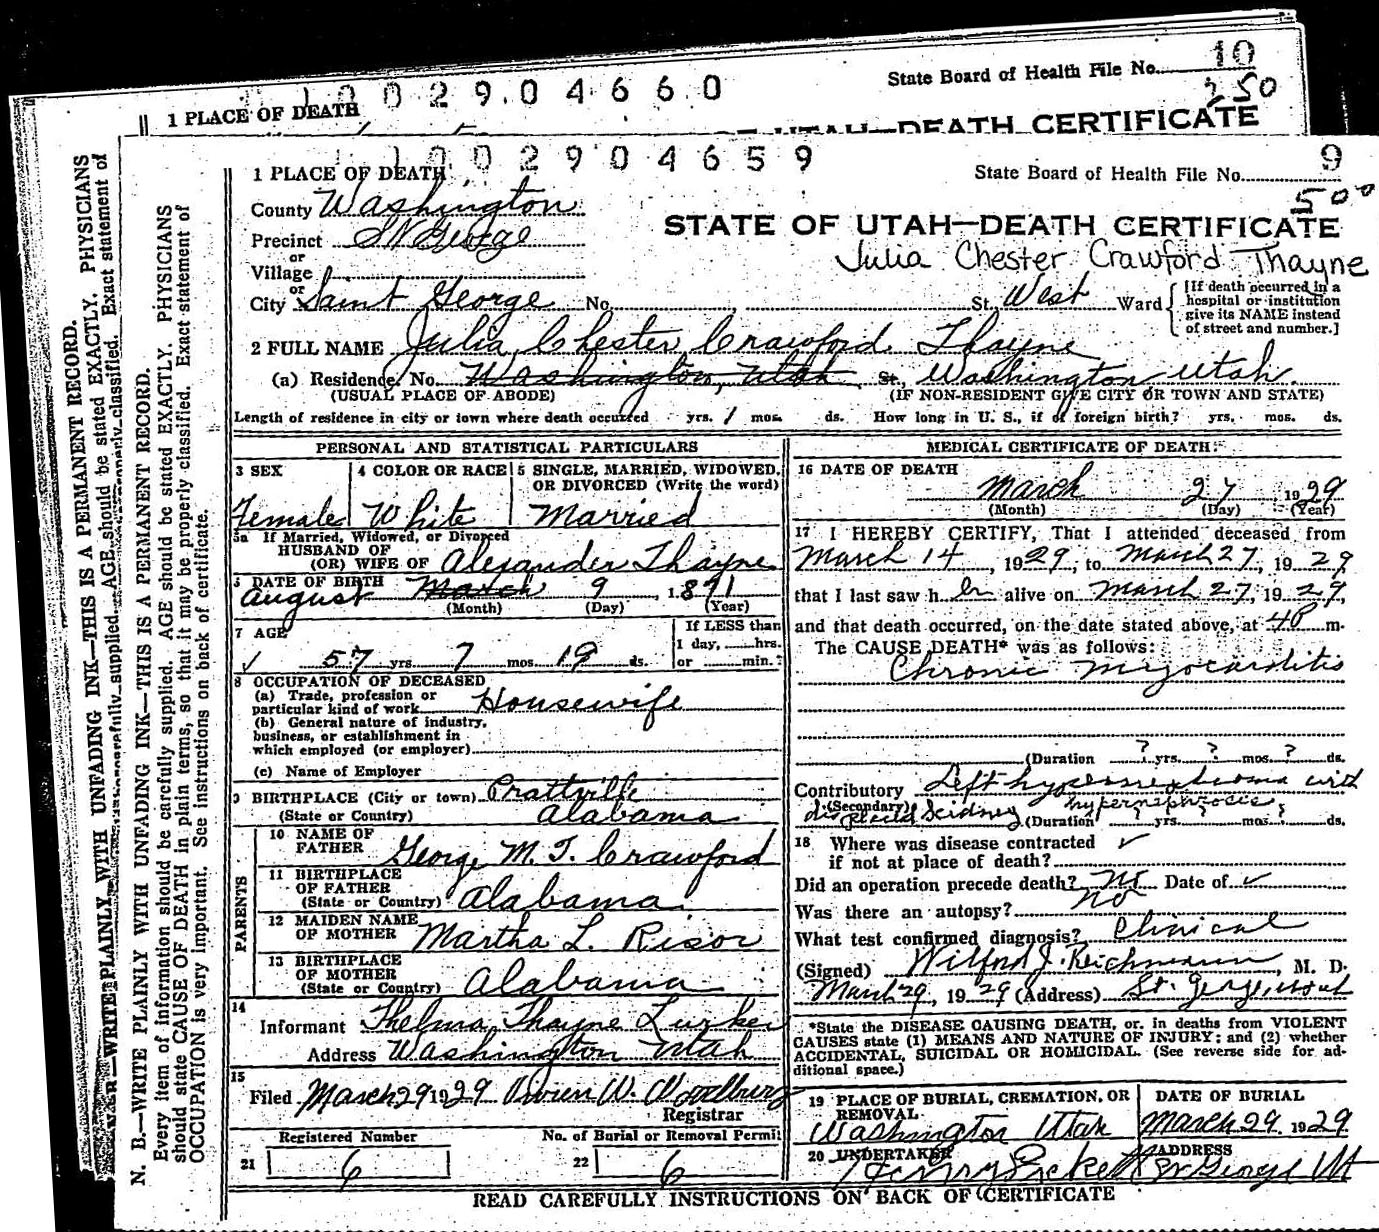 10
State Board of Health File No.
250
1 1 0 0 2 9 0 4 6 6 0
1 PLACE OF DEATH
OF UTAH—DEATH CERTIFICATE
1 1 0 0 2 9 0 4 6 5 9
9
1 PLACE OF DEATH
State Board of Health File No.
500
County Washington
STATE OF UTAH—DEATH CERTIFICATE
Precinct St George
Julia Chester Crawford Thayne
or
Village
or
City Saint George No. St. West Ward
[If death occurred in a
hospital or institution
give its NAME instead
of street and number.]
2 FULL NAME Julia Chester Crawford Thayne
(a) Residence. No. Washington, Utah St., Washington Utah.
(USUAL PLACE OF ABODE) (IF NON-RESIDENT GIVE CITY OR TOWN AND STATE)
Length of residence in city or town where death occurred yrs. 1 mos. ds. How long in U. S., if of foreign birth? yrs. mos. ds.
PERSONAL AND STATISTICAL PARTICULARS
3 SEX
Female
4 COLOR OR RACE
White
5 SINGLE, MARRIED, WIDOWED,
OR DIVORCED (Write the word)
Married
5a If Married, Widowed, or Divorced
HUSBAND OF
(OR) WIFE OF Alexander Thayne
6 DATE OF BIRTH
August March 9, 1871
(Month) (Day) (Year)
7 AGE
✓ 57 yrs. 7 mos. 19 ds.
If LESS than
1 day, hrs.
or min.?
8 OCCUPATION OF DECEASED
(a) Trade, profession or
particular kind of work Housewife
(b) General nature of industry,
business, or establishment in
which employed (or employer)
(c) Name of Employer
9 BIRTHPLACE (City or town) Prattville
(State or Country) Alabama
PARENTS
10 NAME OF
FATHER George M. T. Crawford
11 BIRTHPLACE
OF FATHER
(State or Country) Alabama
12 MAIDEN NAME
OF MOTHER Martha L. Risor
13 BIRTHPLACE
OF MOTHER
(State or Country) Alabama
14
Informant Thelma Thayne
Address Washington Utah
15
Filed March 29 1929
Registrar
Registered Number
21 6
No. of Burial or Removal Permit
22 6
MEDICAL CERTIFICATE OF DEATH
16 DATE OF DEATH
March 27, 1929
(Month) (Day) (Year)
17 I HEREBY CERTIFY, That I attended deceased from
March 14, 1929, to March 27, 1929,
that I last saw h er alive on March 27, 1929,
and that death occurred, on the date stated above, at 4P m.
The CAUSE DEATH* was as follows:
Chronic Myocarditis
(Duration ? yrs. ? mos. ? ds.
Contributory Left with
(Secondary)
Kidney
(Duration ? yrs. ? mos. ? ds.
18 Where was disease contracted ✓
if not at place of death?
Did an operation precede death? No Date of ✓
Was there an autopsy? No
What test confirmed diagnosis? Clinical
(Signed) Wilford J. Reichmann, M. D.
March 29, 1929 (Address) St. George, Utah
*State the DISEASE CAUSING DEATH, or, in deaths from VIOLENT
CAUSES state (1) MEANS AND NATURE OF INJURY; and (2) whether
ACCIDENTAL, SUICIDAL OR HOMICIDAL. (See reverse side for ad-
ditional space.)
19 PLACE OF BURIAL, CREMATION, OR
REMOVAL
Washington Utah
DATE OF BURIAL
March 29, 1929
20 UNDERTAKER
ADDRESS
St George Ut
READ CAREFULLY INSTRUCTIONS ON BACK OF CERTIFICATE
N. B.—WRITE PLAINLY WITH UNFADING INK—THIS IS A PERMANENT RECORD.
Every item of information should be carefully supplied. AGE should be stated EXACTLY. PHYSICIANS
should state CAUSE OF DEATH in plain terms, so that it may be properly classified. Exact statement of
OCCUPATION is very important. See instructions on back of certificate.
WRITE PLAINLY WITH UNFADING INK—THIS IS A PERMANENT RECORD.
carefully supplied. AGE should be stated EXACTLY. PHYSICIANS
properly classified. Exact statement of